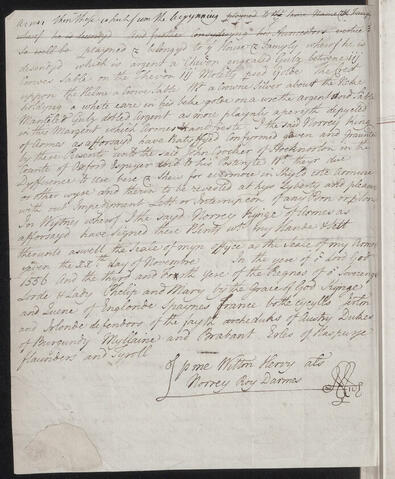 Armes Then Those which from the begynning
wherof he is desentyd And further consideringe his Auncestors
So well be Playned & belongyd to ye House & Famyly wherof he is
desentyd which is argent a Chevron engraled Gulz betwene iij
Crowes Sable on the Chevron iij Moletts
uppon the Helme a Crowne Silver about the Neke
holdeyng a whete eare in his beke golde on a wrethe argent and Sable
Mantelid Gulz doblid Argent as more playnly aperith depycted
in the Margent which Armes & creste I the said Norrey King
of Armes as aforsayd have Ratefyed Confirmed Geven and graunted
by these Presents unto the said Croker of Hocknorton in the
Counte of Oxford Esquyer and to his Posteryte Wt theyr due
Dyfference It use bere & Shew for evermore in Shyld cote Armure
or other wyse and therin to be revested at hys Lyberty and pleasure
with out Impediment Lett or Interrupcon of any Person or persons
In Wytnes wherof I the sayd Norrey Kynge of Armes as
aforsayd have signed these Presents wt my Hande & Sett
therunto aswell the Seale of myn offyce as the Seale of my Armes
yeven the XXth day of Novembre In the yere of or Lord God
1556 And the third and Forth yere of the Regnes of or Soveraigne
Lorde & Lady Phelip and Mary by the Grace of God Kynge
and Quene of Englonde Spaynes France both Cycylls
and Irlonde defendors of the fayth archedukes of Austry Dukes
of Burgundy Myllaine and Brabant Erles of Haspurge
Flaunders and Tyroll
p me Willm Hervy als
Norrey Roy Darmes